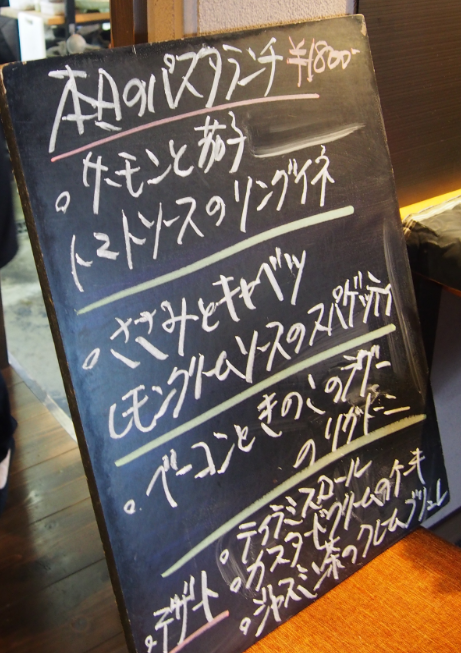 本日のパスタランチ ¥1800-
。サーモンと茄子
トマトソースのリングイネ
。ささみとキャベツ
レモンクリームソースのスパゲッティ
。ベーコンときのこの
のリガトーニ
。デザート
・ティラミスロール
・カスタードクリームのケーキ
・ジャスミン茶のクレームブリュレ